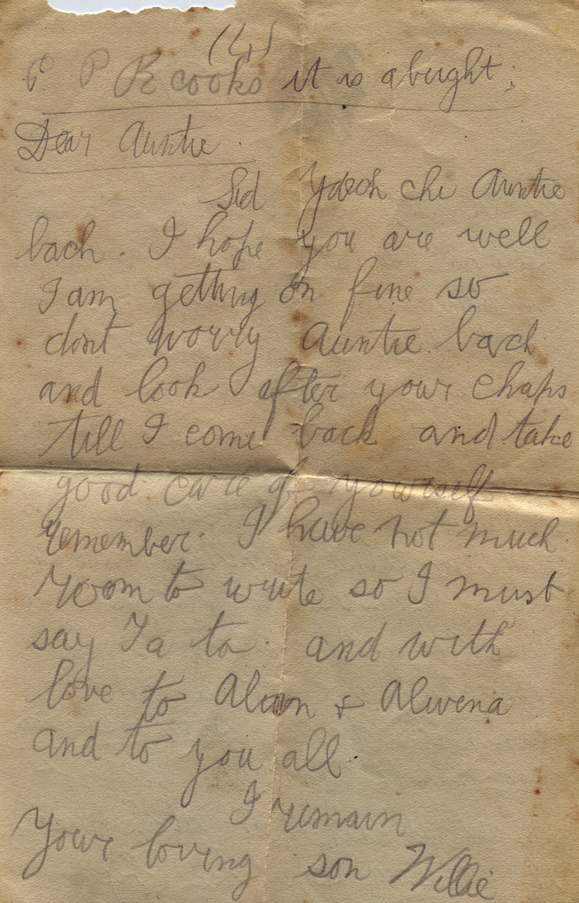 (4)
P P R cooks it is abught;
Dear Auntie.
Sid Ydech chi Auntie
bach. I hope you are well
I am getting on fine so
dont worry Auntie bach
and look after your chaps
till I come back and take
good care of yourself
remember. I have not much
room to write so I must
say Ta ta. and with
love to Alwn & Alwena
and to you all.
I remain
Your loving son Willie